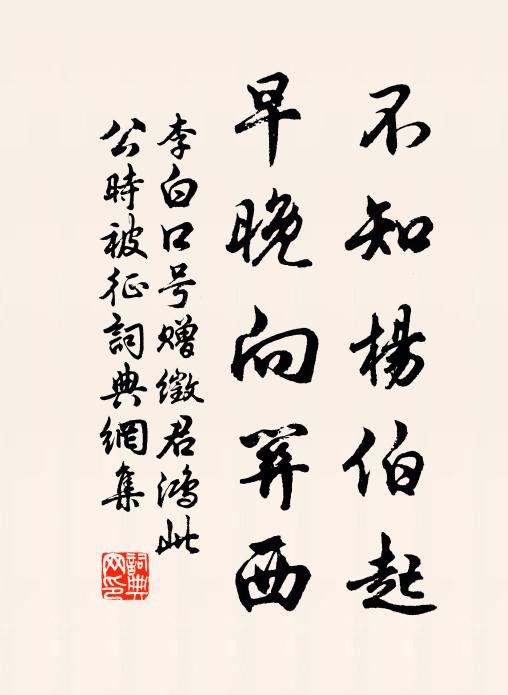 不知楊伯起
早晚向關西
李白口号贈徵君鴻此
公時被征詞典網集
詞典
网印